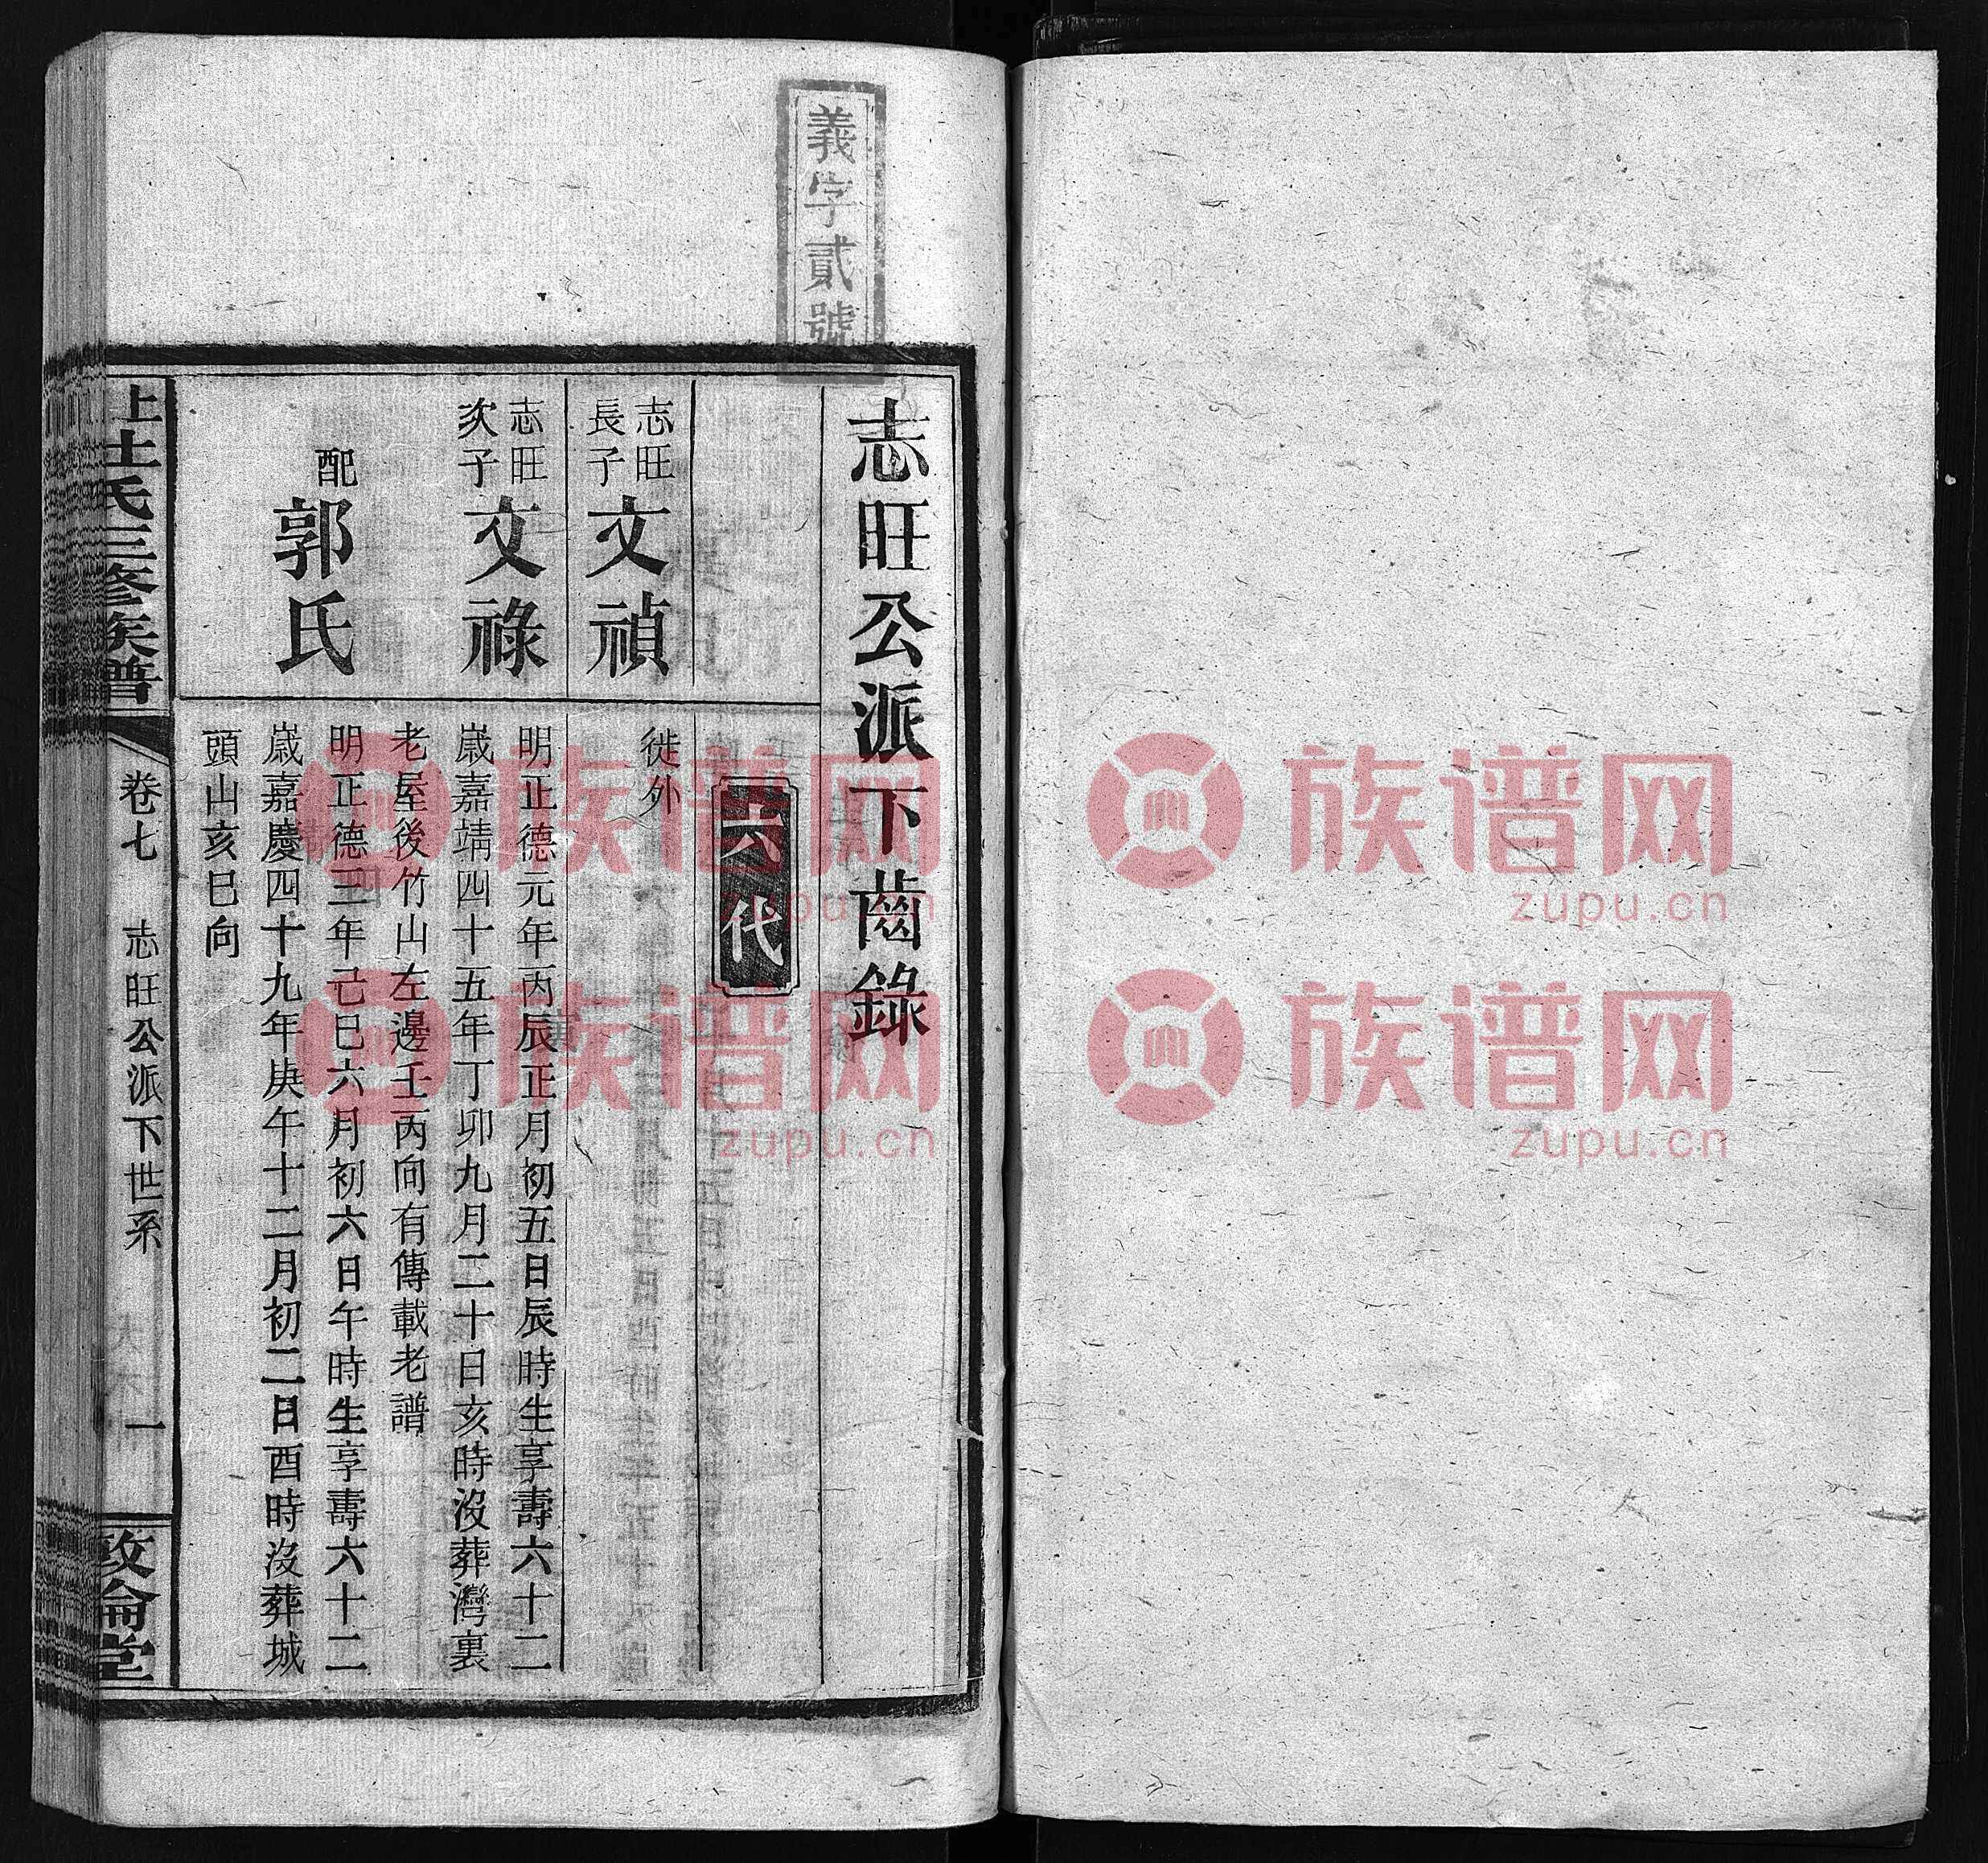 義字貳號
志旺公派下齒錄
六代
志旺
長子
文禎
徙外
志旺
次子
文祿
明正德元年丙辰正月初五日辰時生享壽六十二
歲嘉靖四十五年丁卯九月二十日亥時沒葬灣裏
老屋後竹山左邊壬丙向有傳載老譜
配
郭氏
明正德三年己巳六月初六日午時生享壽六十二
歲嘉慶四十九年庚午十二月初二日酉時沒葬城
頭山亥巳向
氏三修族譜
卷七
志旺公派下世系
一
倫堂
族谱网
zupu.cn
族谱网
zupu.cn
族谱网
zupu.cn
族谱网
zupu.cn